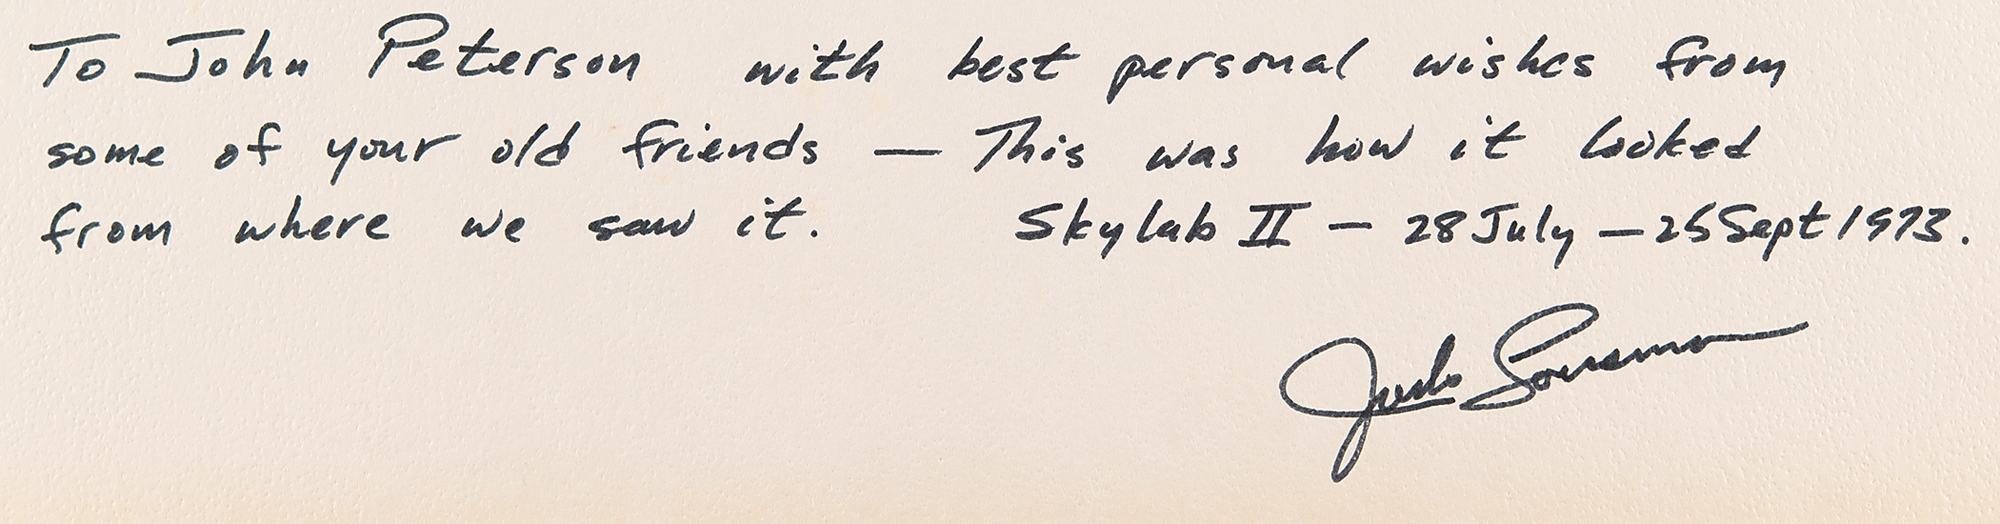 To John Peterson with best personal wishes from
some of your old friends — This was how it looked
from where we saw it. Skylab II — 28 July — 25 Sept 1973.
Jack Lousma